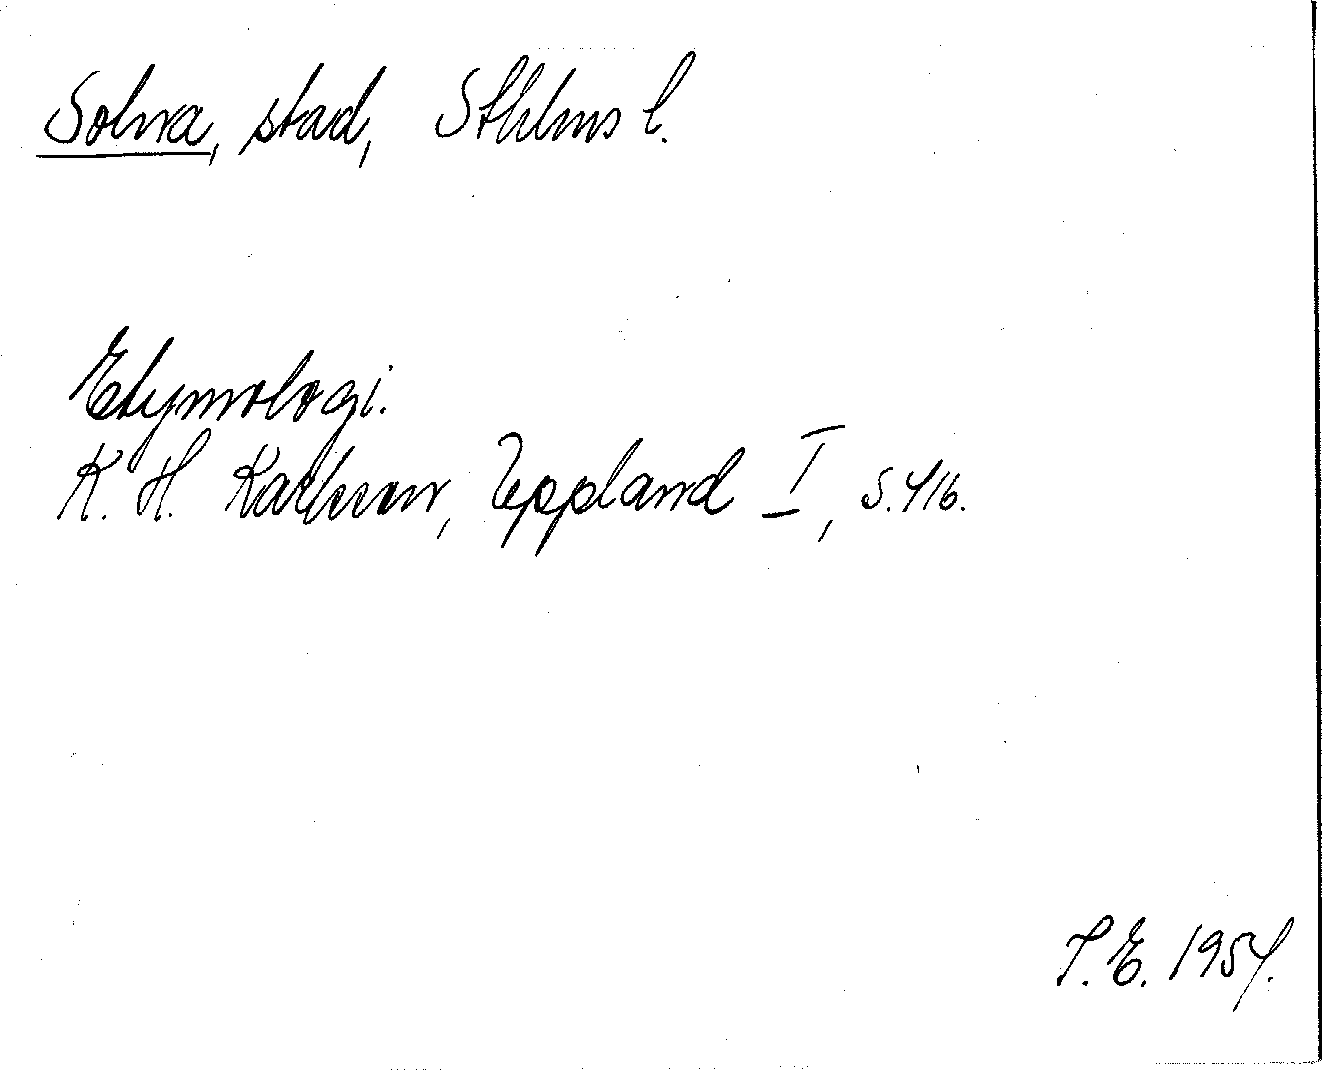 Solna, stad, Sthlms l.
Etymologi.
K. H. Karlsson, Uppland I, s. 416.
S. E. 1954.